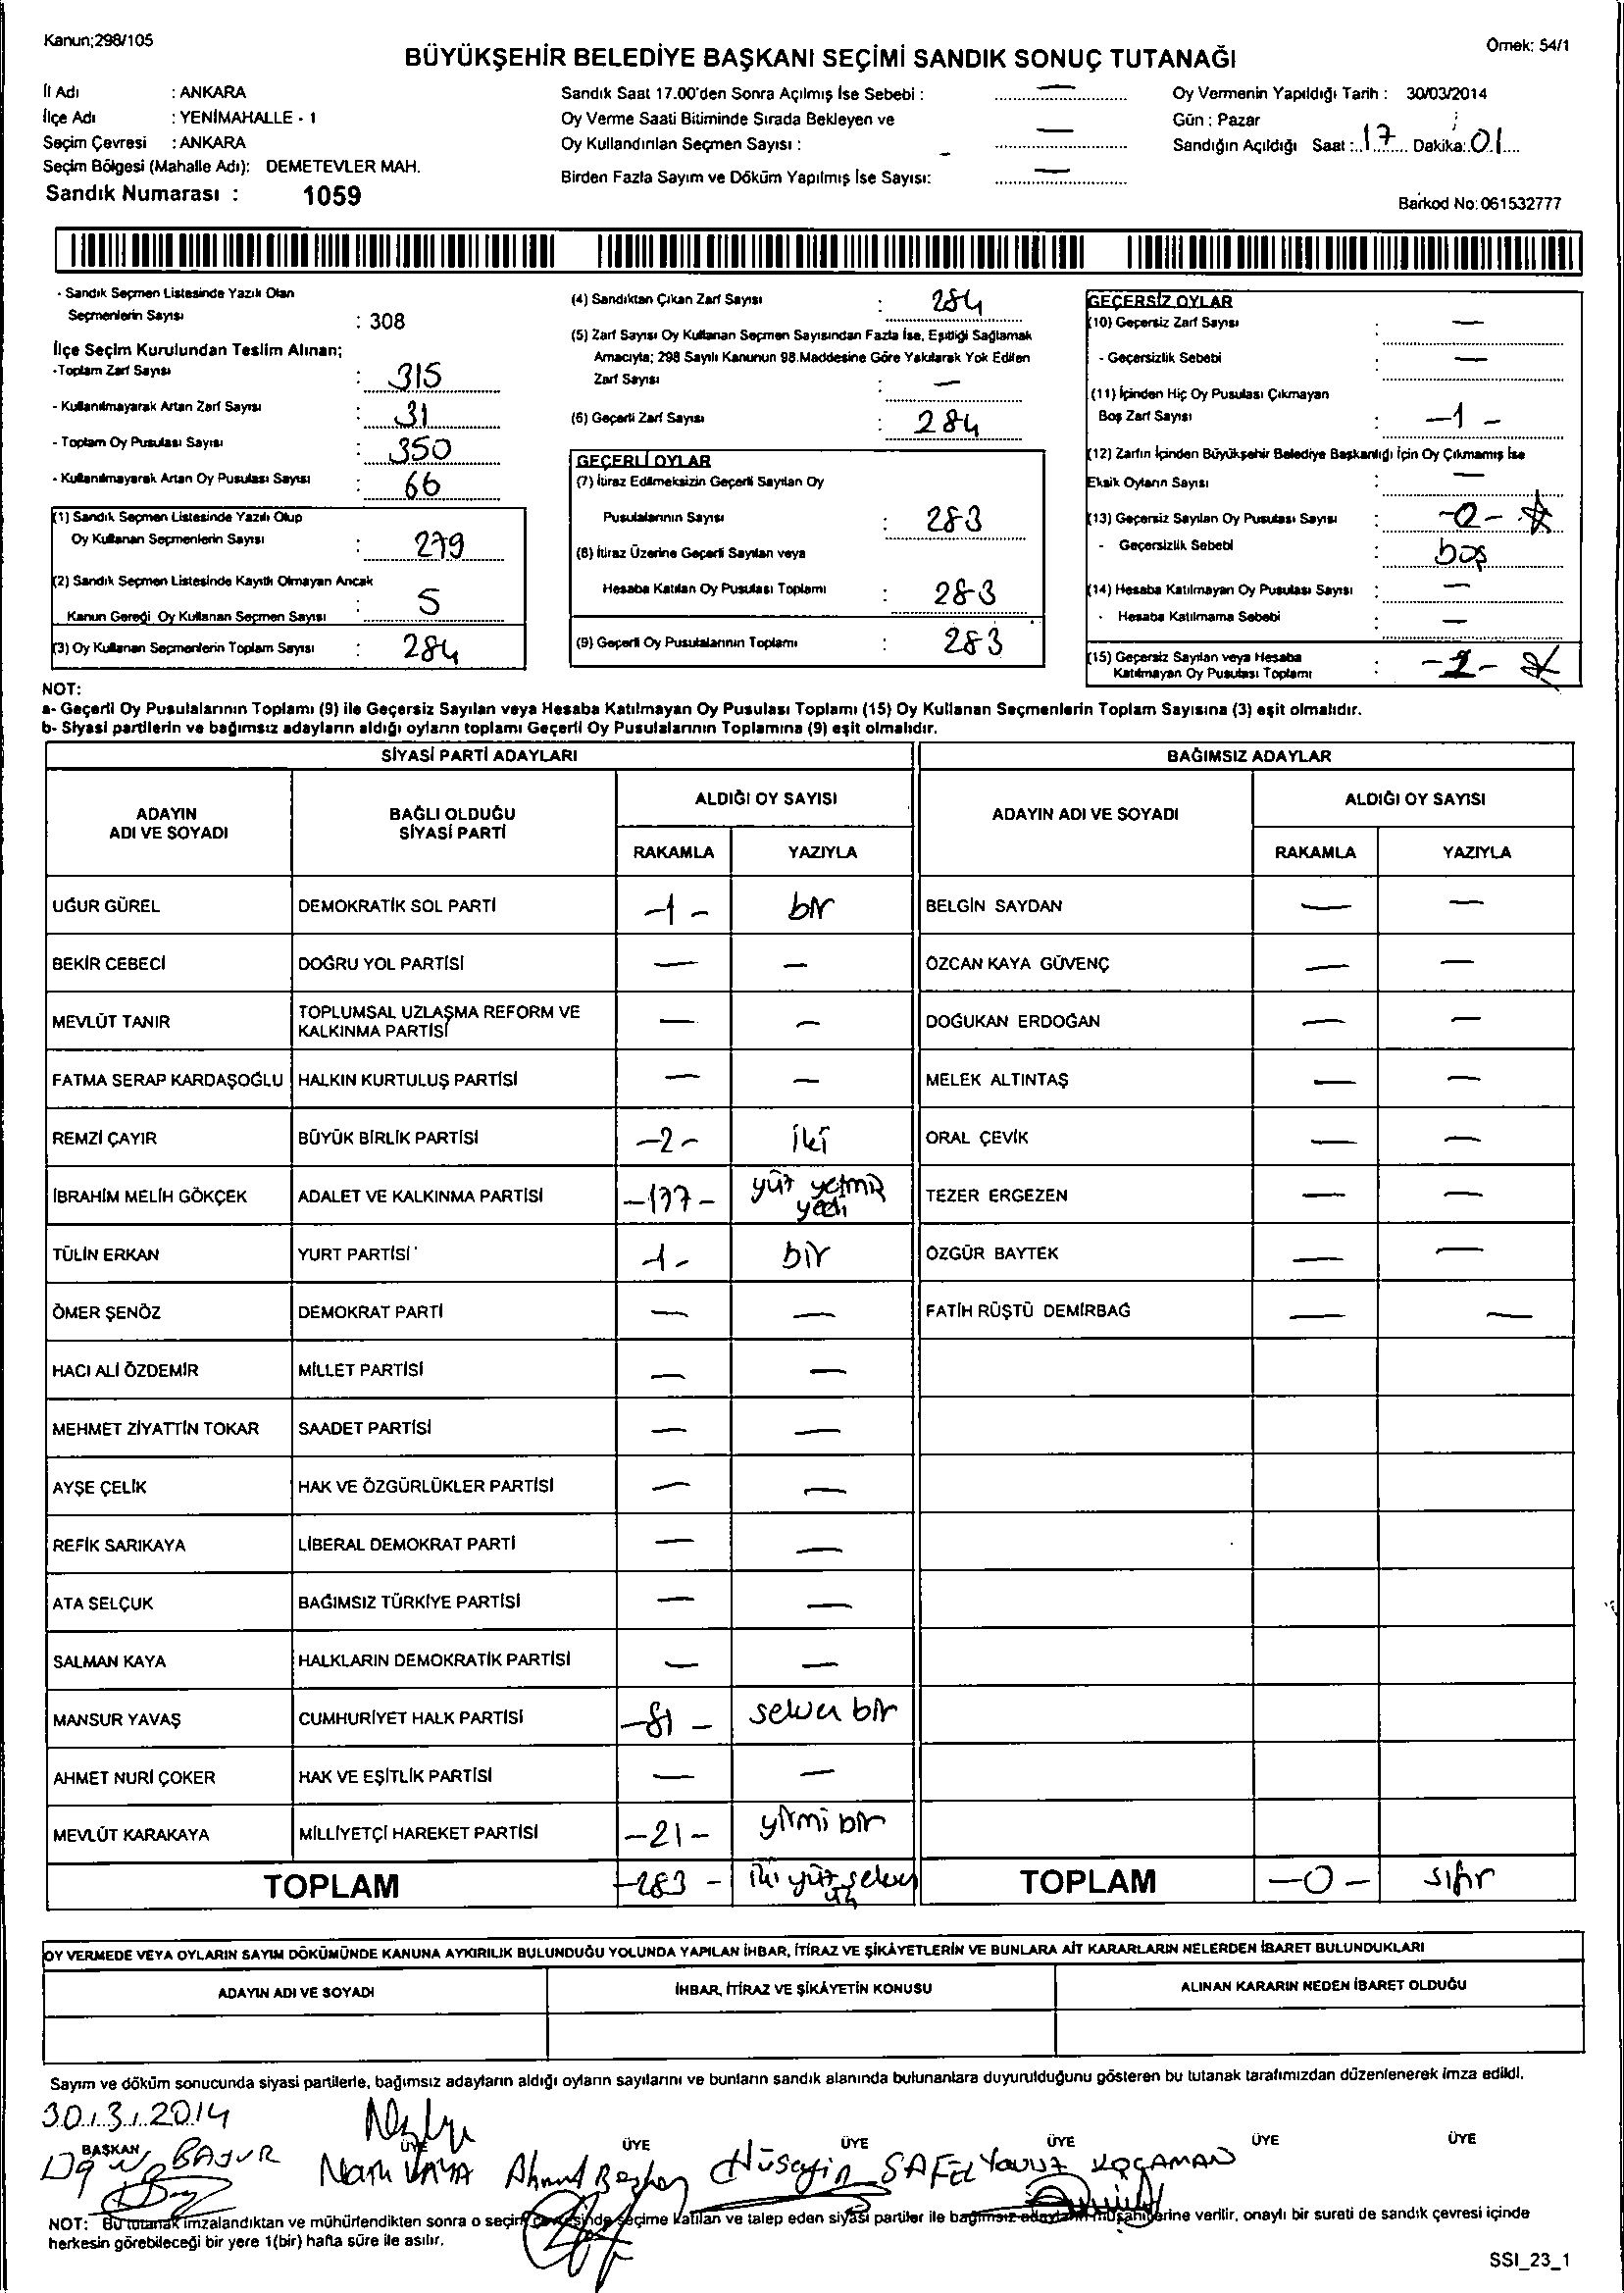 Kanun;298/105
Örnek: 54/1
BÜYÜKŞEHİR BELEDİYE BAŞKANI SEÇİMİ SANDIK SONUÇ TUTANAĞI
İl Adı : ANKARA
İlçe Adı : YENİMAHALLE - 1
Seçim Çevresi : ANKARA
Seçim Bölgesi (Mahalle Adı): DEMETEVLER MAH.
Sandık Numarası : 1059
Sandık Saat 17.00'den Sonra Açılmış İse Sebebi : —
Oy Verme Saati Bitiminde Sırada Bekleyen ve
Oy Kullandırılan Seçmen Sayısı : —
Birden Fazla Sayım ve Döküm Yapılmış İse Sayısı: —
Oy Vermenin Yapıldığı Tarih : 30/03/2014
Gün : Pazar
Sandığın Açıldığı Saat : 17 Dakika: 01
Barkod No: 061532777
- Sandık Seçmen Listesinde Yazılı Olan
Seçmenlerin Sayısı : 308
İlçe Seçim Kurulundan Teslim Alınan;
-Toplam Zarf Sayısı : 315
- Kullanılmayarak Artan Zarf Sayısı : 31
- Toplam Oy Pusulası Sayısı : 350
- Kullanılmayarak Artan Oy Pusulası Sayısı : 66
(1) Sandık Seçmen Listesinde Yazılı Olup
Oy Kullanan Seçmenlerin Sayısı : 279
(2) Sandık Seçmen Listesinde Kayıtlı Olmayan Ancak
Kanun Gereği Oy Kullanan Seçmen Sayısı : 5
(3) Oy Kullanan Seçmenlerin Toplam Sayısı : 284
(4) Sandıktan Çıkan Zarf Sayısı : 284
(5) Zarf Sayısı Oy Kullanan Seçmen Sayısından Fazla İse, Eşitliği Sağlamak
Amacıyla; 298 Sayılı Kanunun 98.Maddesine Göre Yakılarak Yok Edilen
Zarf Sayısı : —
(6) Geçerli Zarf Sayısı : 284
GEÇERLİ OYLAR
(7) İtiraz Edilmeksizin Geçerli Sayılan Oy
Pusulalarının Sayısı : 283
(8) İtiraz Üzerine Geçerli Sayılan veya
Hesaba Katılan Oy Pusulası Toplamı : 283
(9) Geçerli Oy Pusulalarının Toplamı : 283
GEÇERSİZ OYLAR
(10) Geçersiz Zarf Sayısı : —
- Geçersizlik Sebebi : —
(11) İçinden Hiç Oy Pusulası Çıkmayan
Boş Zarf Sayısı : -1-
(12) Zarfın İçinden Büyükşehir Belediye Başkanlığı İçin Oy Çıkmamış İse
Eksik Oyların Sayısı : —
(13) Geçersiz Sayılan Oy Pusulası Sayısı : -0-
- Geçersizlik Sebebi : boş
(14) Hesaba Katılmayan Oy Pusulası Sayısı : —
- Hesaba Katılmama Sebebi : —
(15) Geçersiz Sayılan veya Hesaba
Katılmayan Oy Pusulası Toplamı :
NOT:
a- Geçerli Oy Pusulalarının Toplamı (9) ile Geçersiz Sayılan veya Hesaba Katılmayan Oy Pusulası Toplamı (15) Oy Kullanan Seçmenlerin Toplam Sayısına (3) eşit olmalıdır.
b- Siyasi partilerin ve bağımsız adayların aldığı oyların toplamı Geçerli Oy Pusulalarının Toplamına (9) eşit olmalıdır.
SİYASİ PARTİ ADAYLARI BAĞIMSIZ ADAYLAR
ADAYIN ADI VE SOYADI BAĞLI OLDUĞU SİYASİ PARTİ ALDIĞI OY SAYISI ADAYIN ADI VE SOYADI ALDIĞI OY SAYISI
RAKAMLA YAZIYLA RAKAMLA YAZIYLA
UĞUR GÜREL DEMOKRATİK SOL PARTİ -1- bir BELGİN SAYDAN — —
BEKİR CEBECİ DOĞRU YOL PARTİSİ — — ÖZCAN KAYA GÜVENÇ — —
MEVLÜT TANIR TOPLUMSAL UZLAŞMA REFORM VE KALKINMA PARTİSİ — — DOĞUKAN ERDOĞAN — —
FATMA SERAP KARDAŞOĞLU HALKIN KURTULUŞ PARTİSİ — — MELEK ALTINTAŞ — —
REMZİ ÇAYIR BÜYÜK BİRLİK PARTİSİ -2- iki ORAL ÇEVİK — —
İBRAHİM MELİH GÖKÇEK ADALET VE KALKINMA PARTİSİ -177- yüz yetmiş yedi TEZER ERGEZEN — —
TÜLİN ERKAN YURT PARTİSİ -1- bir ÖZGÜR BAYTEK — —
ÖMER ŞENÖZ DEMOKRAT PARTİ — — FATİH RÜŞTÜ DEMİRBAĞ — —
HACI ALİ ÖZDEMİR MİLLET PARTİSİ — —
MEHMET ZİYATTİN TOKAR SAADET PARTİSİ — —
AYŞE ÇELİK HAK VE ÖZGÜRLÜKLER PARTİSİ — —
REFİK SARIKAYA LİBERAL DEMOKRAT PARTİ — —
ATA SELÇUK BAĞIMSIZ TÜRKİYE PARTİSİ — —
SALMAN KAYA HALKLARIN DEMOKRATİK PARTİSİ — —
MANSUR YAVAŞ CUMHURİYET HALK PARTİSİ -81- seksen bir
AHMET NURİ ÇOKER HAK VE EŞİTLİK PARTİSİ — —
MEVLÜT KARAKAYA MİLLİYETÇİ HAREKET PARTİSİ -21- yirmi bir
TOPLAM -283- iki yüz seksen üç TOPLAM -0- sıfır
OY VERMEDE VEYA OYLARIN SAYIM DÖKÜMÜNDE KANUNA AYKIRILIK BULUNDUĞU YOLUNDA YAPILAN İHBAR, İTİRAZ VE ŞİKÂYETLERİN VE BUNLARA AİT KARARLARIN NELERDEN İBARET BULUNDUKLARI
ADAYIN ADI VE SOYADI İHBAR, İTİRAZ VE ŞİKÂYETİN KONUSU ALINAN KARARIN NEDEN İBARET OLDUĞU
Sayım ve döküm sonucunda siyasi partilerle, bağımsız adayların aldığı oyların sayılarını ve bunların sandık alanında bulunanlara duyurulduğunu gösteren bu tutanak tarafımızdan düzenlenerek imza edildi.
30.3.2014
BAŞKAN ÜYE ÜYE ÜYE ÜYE ÜYE ÜYE
Hüseyin Yavuz KOÇAMAN
NOT: Bu tutanak imzalandıktan ve mühürlendikten sonra o seçim çevresinde seçime katılan ve talep eden siyasi partiler ile bağımsız adayların müşahitlerine verilir, onaylı bir sureti de sandık çevresi içinde
herkesin görebileceği bir yere 1(bir) hafta süre ile asılır.
SSI_23_1